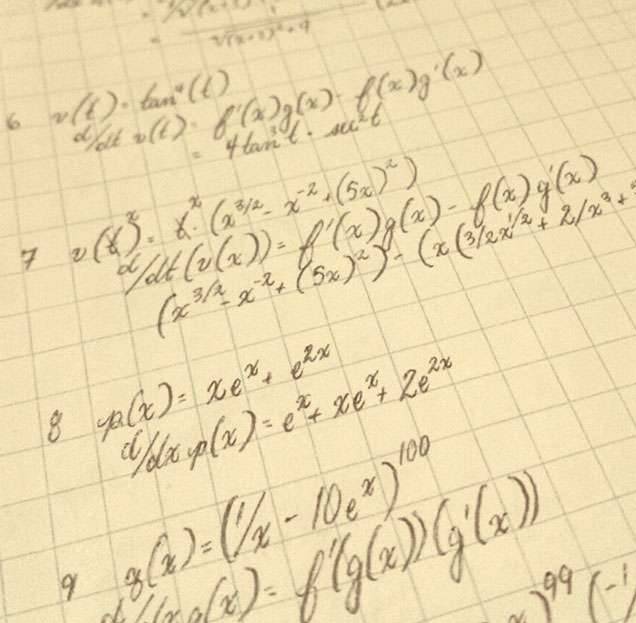 √(x+3)²+4
6 v(t) = tan⁴(t)
d/dt v(t) = f'(x)g(x) - f(x)g'(x)
= 4tan³t · sec²t
7 v(x) = x · (x^3/2 - x^-2 + (5x)²)
d/dt(v(x)) = f'(x)g(x) - f(x)g'(x)
(x^3/2 - x^-2 + (5x)²) - (x(3/2x^1/2 + 2/x³ +
8 p(x) = xe^x + e^2x
d/dx p(x) = e^x + xe^x + 2e^2x
9 q(x) = (1/x - 10e^x)^100
d/dx q(x) = f'(g(x))(g'(x))
x)^99 (-1/